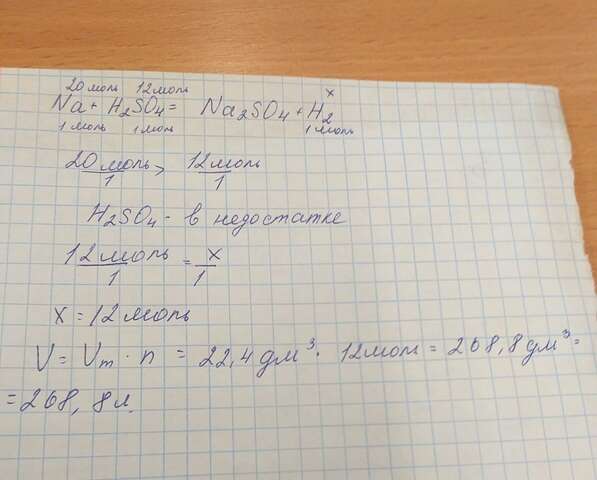 20 моль 12 моль x
Na + H2SO4 = Na2SO4 + H2
1 моль 1 моль 1 моль
20 моль/1 > 12 моль/1
H2SO4 - в недостатке
12 моль/1 = x/1
x = 12 моль
V = Vm · n = 22,4 дм³ · 12 моль = 268,8 дм³ =
= 268,8 л.